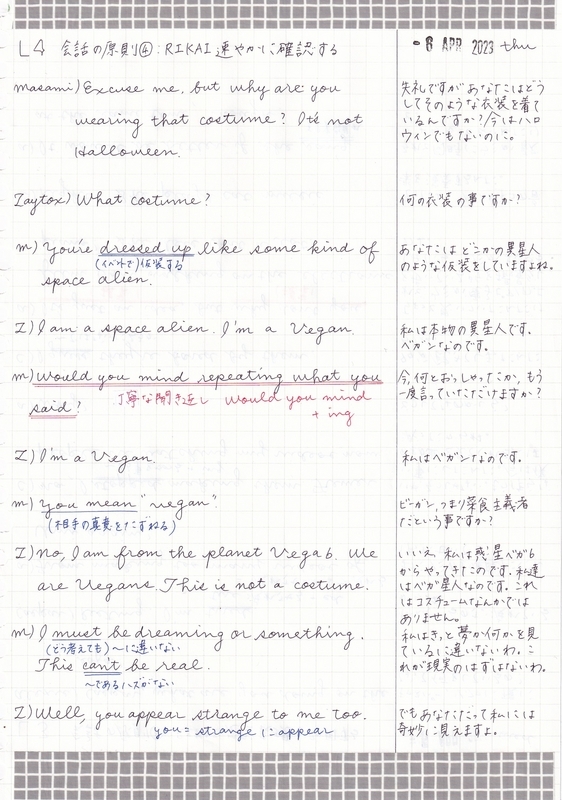 L4 会話の原則④:RIKAI 速やかに確認する
- 6 APR 2023 thu
masami) Excuse me, but why are you
wearing that costume? It's not
Halloween.
失礼ですがあなたはどう
してそのような衣装を着て
いるんですか?今はハロ
ウィンでもないのに。
Zaytox) What costume?
何の衣装の事ですか?
m) You're dressed up like some kind of
(イベントで)仮装する
space alien.
あなたはどこかの異星人
のような仮装をしていますよね。
Z) I am a space alien. I'm a Vegan.
私は本物の異星人です。
ベガンなのです。
m) Would you mind repeating what you
said? 丁寧な聞き返し would you mind
+ ing
今、何とおっしゃったか、もう
一度言っていただけますか?
Z) I'm a Vegan.
私はベガンなのです。
m) You mean "vegan".
(相手の真意をたずねる)
ビーガン、つまり菜食主義者
だという事ですか?
Z) No, I am from the planet Vega 6. We
are Vegans. This is not a costume.
いいえ、私は惑星ベガ6
からやってきたのです。私達
はベガ星人なのです。これ
はコスチュームなんかでは
ありません。
m) I must be dreaming or something.
(どう考えても)~に違いない
This can't be real.
~であるハズがない
私はきっと夢か何かを見
ているに違いないわ。こ
れが現実のはずはないわ。
Z) Well, you appear strange to me too.
you = strange に appear
でもあなただって私には
奇妙に見えますよ。